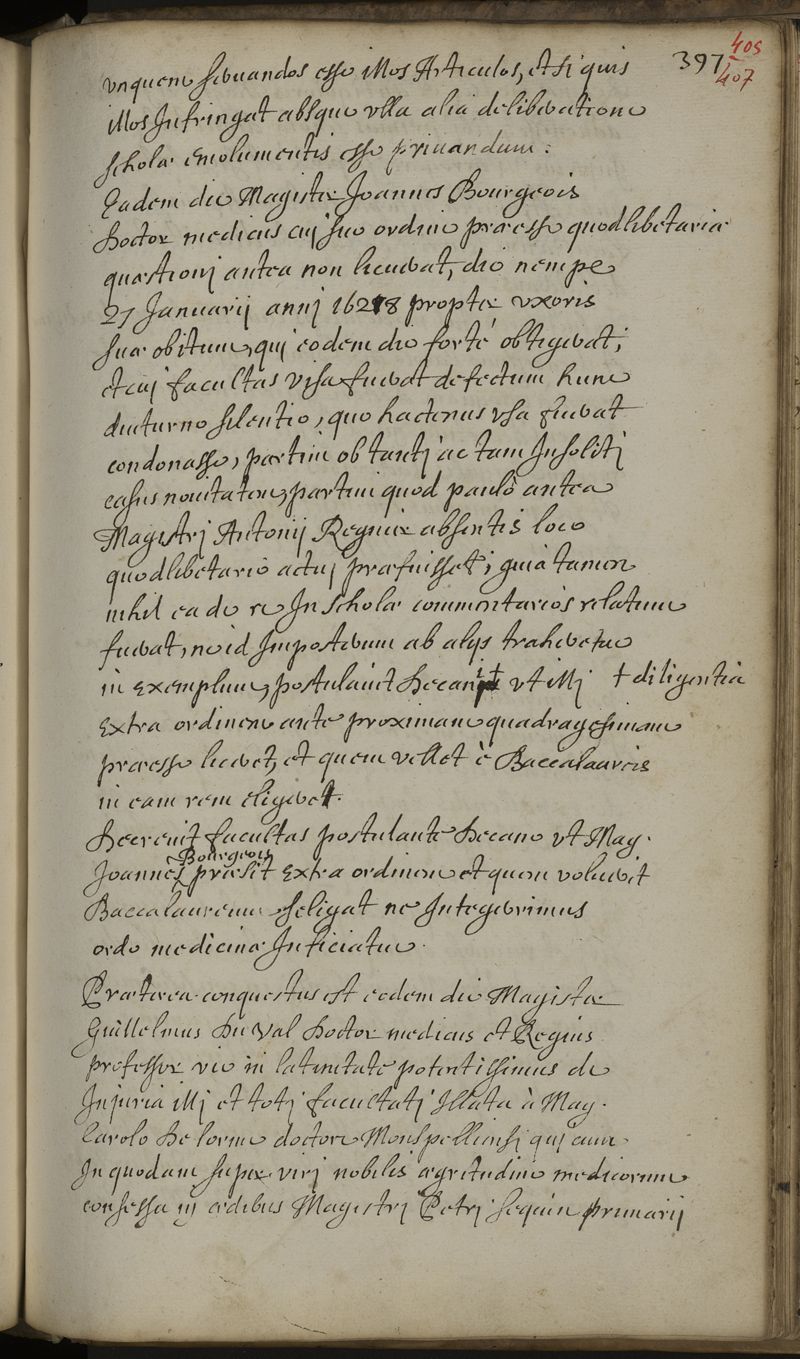 397 405
407
vnquem seruandos esse illos Articulos, et si quis
illos Infringat absque vlla alia deliberatione
scholæ emolumentis esse priuandum :
Eadem die Magister Joannes Bourgeois
Doctor medicus cuj suo ordine præesse quodlibetariæ
quæstionj antea non licuerat, die nempe
27 Januarij annj 1628 propter vxoris
suæ obitum, quj eodem die forté obtigerat,
et cuj facultas visa fuerat defectum hunc
diuturno silentio, quo hactenus vsa fuerat
condonasse, partim ob tantj ac tam Insolitj
casus nouitatem, partim quod paulò antea
Magistrj Antonij Regnier absentis loco
quodlibetario actuj præfuisset; quia tamen
nihil ea de re In scholæ commentarios relatum
fuerat, ne id Imposterum ab alijs traheretur
in exemplum, postulauit Decanj † vt illj † diligentia
extra ordinem ante proximam quadragesimam
præesse liceret, et quem vellet è Baccalaureis
in eam rem eligeret.
Decreuit facultas postulante Decano vt Mag.
Bourgeois
Joannes præsit extra ordinem et quem voluerit
Baccalaureum seligat ne Integerrimus
ordo medicinæ Inficiatur.
Præterea conquestus est eodem die Magister
Guillelmus Du Val Doctor medicus et Regius
professor vir in latinitate potentissimus de
Injuria illj et totj facultatj Illata à Mag.
Carolo De lorme doctore Monspelliensj quj cum
In quodam super virj nobilis ægritudine medicorum
consessu in ædibus Magistrj Petrj Seguin primarij